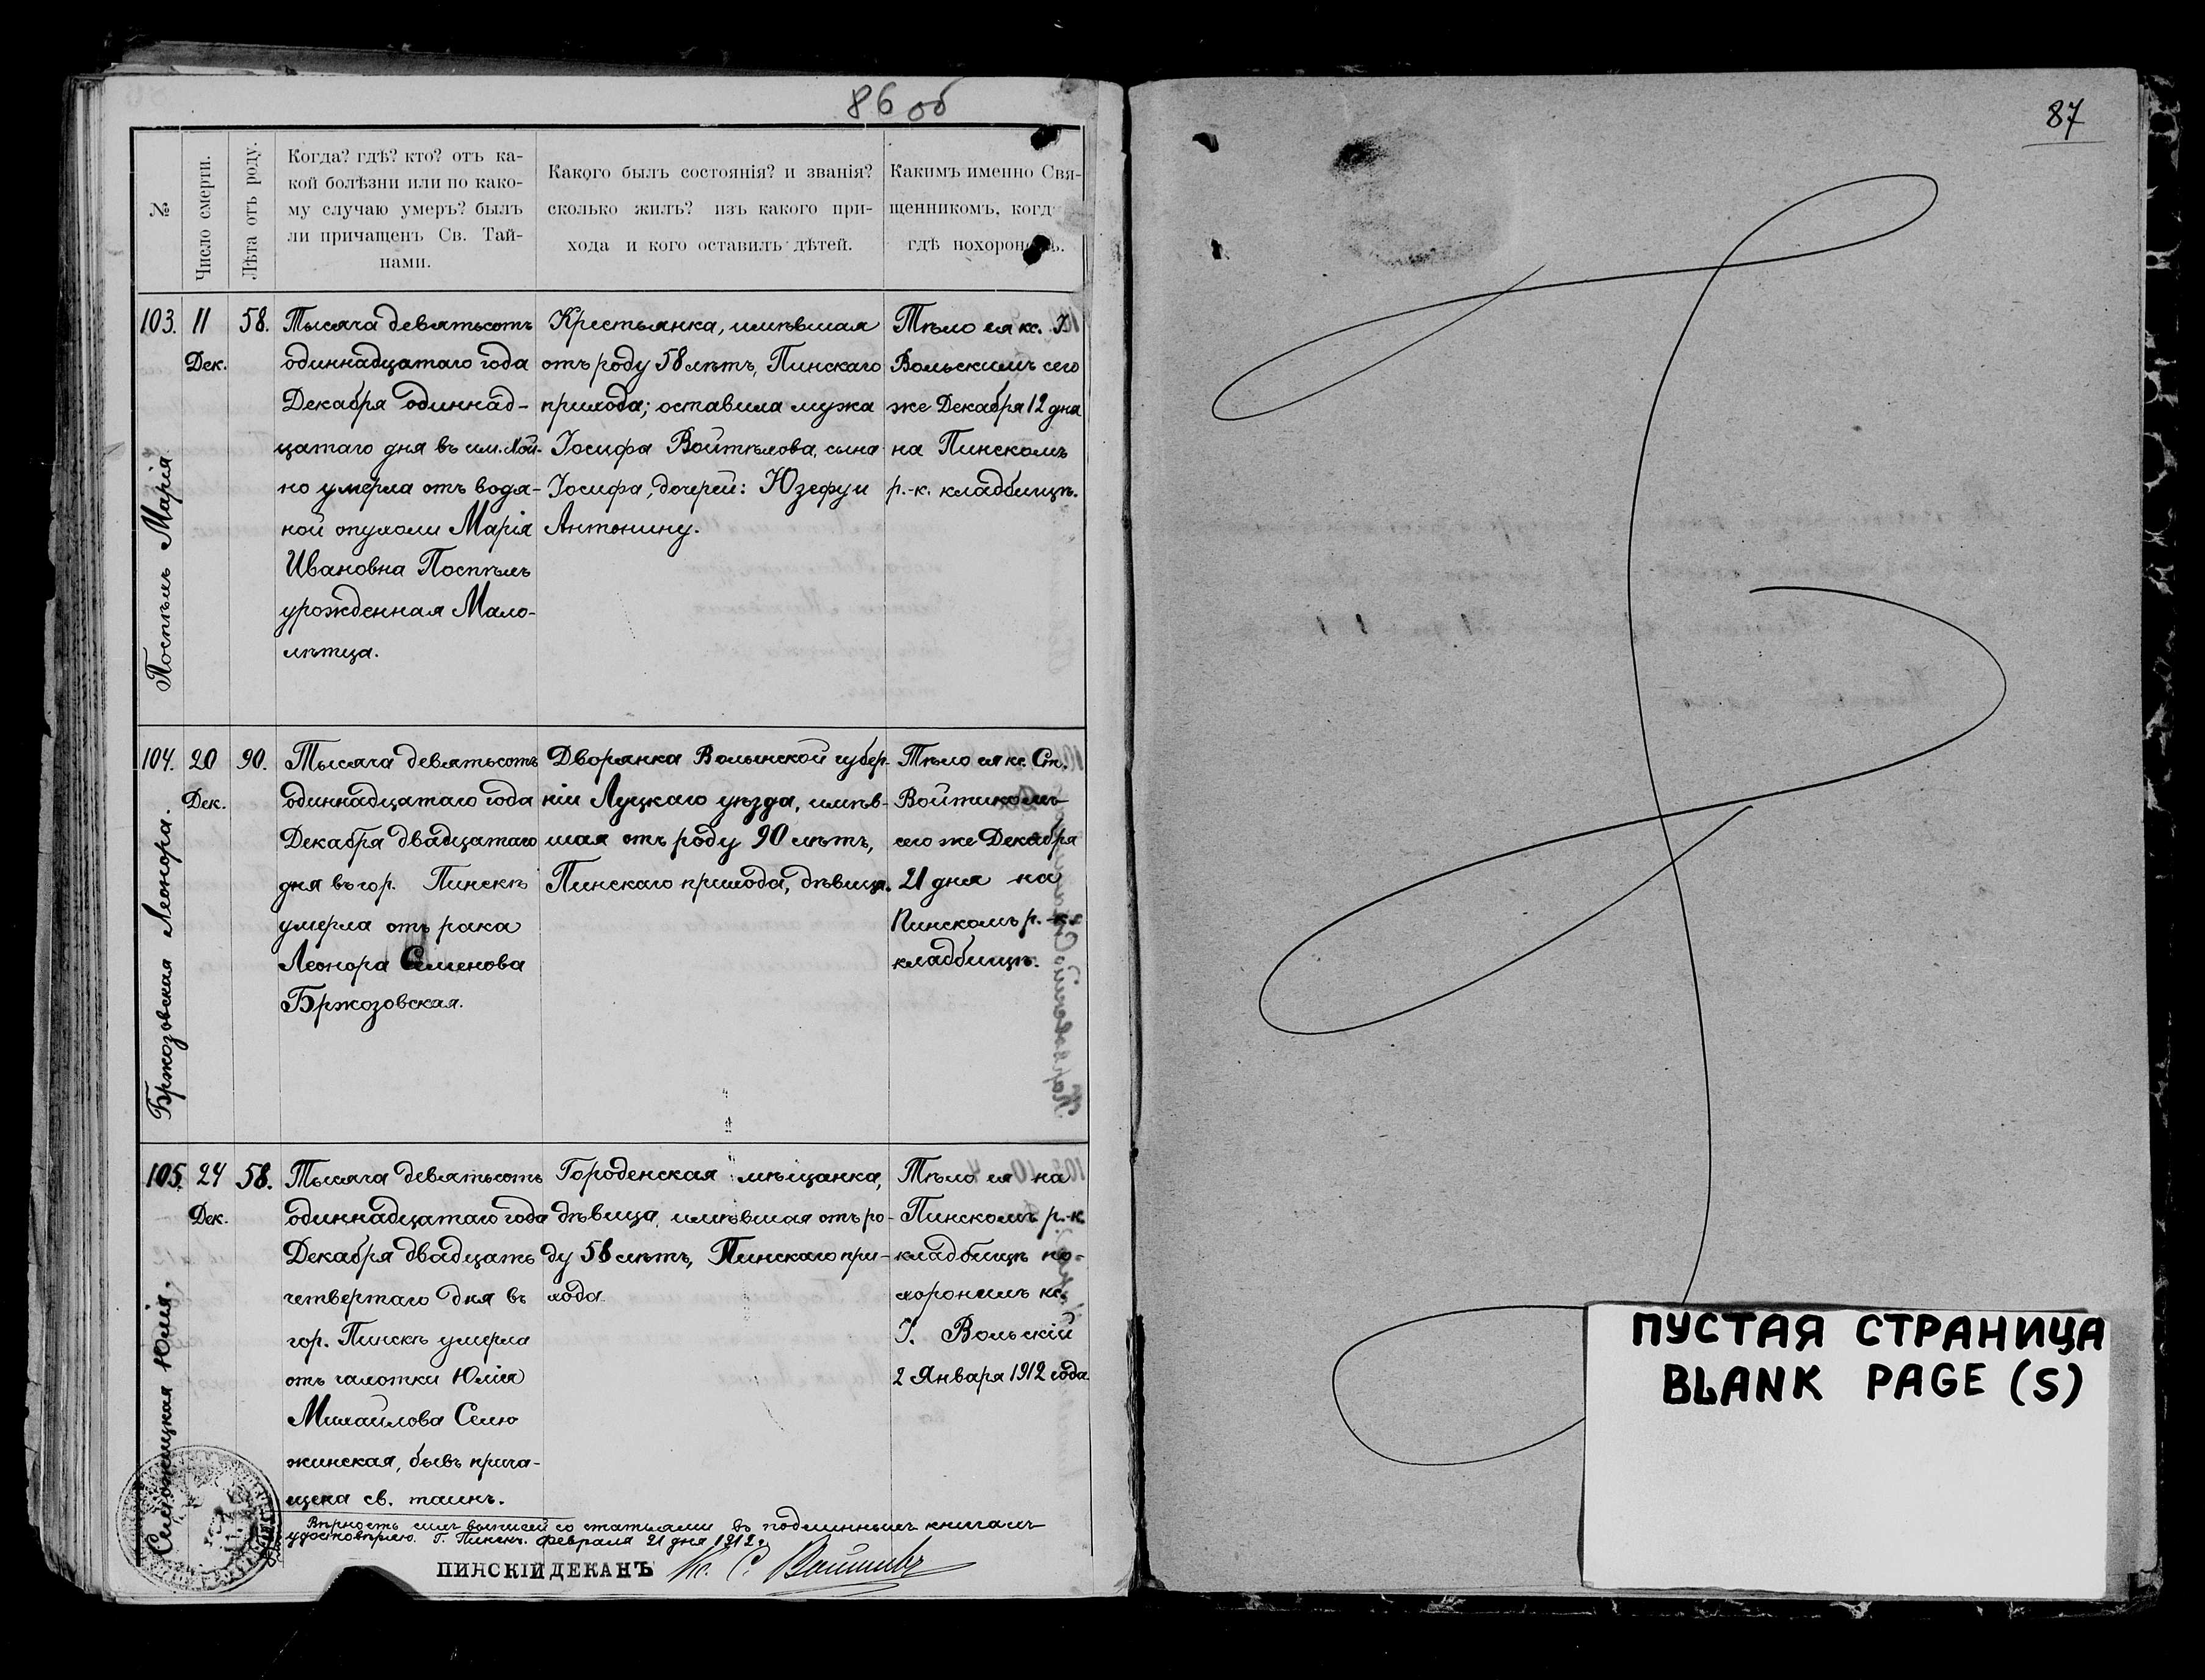 86 об
№
Число смерти.
Лѣта отъ роду.
Когда? гдѣ? кто? отъ ка-
кой болѣзни или по како-
му случаю умеръ? былъ
ли причащенъ Св. Тай-
нами.
Какого былъ состоянія? и званія?
сколько жилъ? изъ какого при-
хода и кого оставилъ дѣтей.
Какимъ именно Свя-
щенникомъ, когд
гдѣ похорон
103.
Поспѣль Марія
11
Дек.
58.
Тысяча девятьсотъ
одиннадцатаго года
Декабря одиннад-
цатаго дня въ им.
но умерла отъ водя-
ной опухоли Марія
Ивановна Поспѣль
урожденная Мало-
лѣтца.
Крестьянка, имѣвшая
отъ роду 58 лѣтъ, Пинскаго
прихода; оставила мужа
Іосифа Войтѣхова, сына
Іосифа, дочерей: Юзефу и
Антонину.
Тѣло ея кс. І
Вольскимъ сего
же Декабря 12 дня
на Пинскомъ
р.-к. кладбищѣ.
104.
Бржозовская Леонора.
20
Дек.
90.
Тысяча девятьсотъ
одиннадцатаго года
Декабря двадцатаго
дня въ гор. Пинскѣ
умерла отъ рака
Леонора Семенова
Бржозовская.
Дворянка Волынской губер-
ніи Луцкаго уѣзда, имѣв-
шая отъ роду 90 лѣтъ,
Пинскаго прихода, дѣвица.
Тѣло ея кс. Ст.
Войтикомъ
сего же Декабря
21 дня на
Пинскомъ р.-к.
кладбищѣ.
105.
Сеножицкая Юлія.
24
Дек.
58.
Тысяча девятьсотъ
одиннадцатаго года
Декабря двадцать
четвертаго дня въ
гор. Пинскѣ умерла
отъ чахотки Юлія
Михайлова Сено
жинская, бывъ прича-
щена св. таинъ.
Городенская мѣщанка,
дѣвица, имѣвшая отъ ро-
ду 58 лѣтъ, Пинскаго при-
хода.
Тѣло ея на
Пинскомъ р.-к.
кладбищѣ по-
хоронилъ кс.
І. Вольскій
2 Января 1912 года
Вѣрность сихъ выписей со статьями въ подлинныхъ книгахъ
удостовѣряю. Г. Пинскъ. Февраля 21 дня 1912 г.
ПИНСКІЙ ДЕКАНЪ Кс. С. Войтикъ
87
ПУСТАЯ СТРАНИЦА
BLANK PAGE (S)